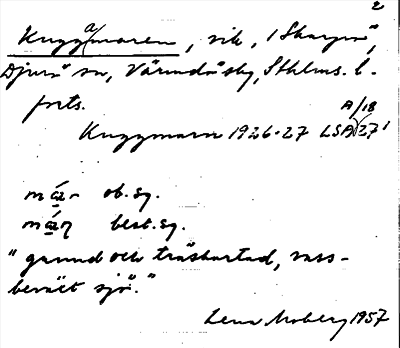 2
Kuggmaren, vik, i Skarpö",
Djurö sn, Värmdö sby, Sthlms. l.
forts.
A/18
Kuggmarn 1926-27 LSA 27'
ob. sg.
best. sg.
"grund och träskartad, vass-
beväxt sjö."
Lena Moberg 1957